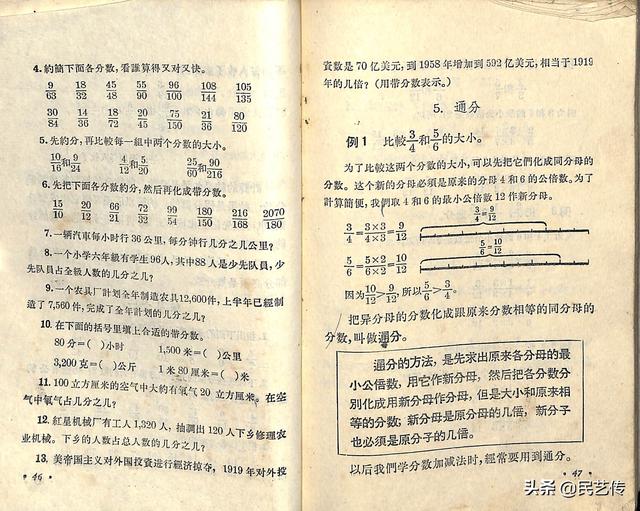 4. 約簡下面各分数,看誰算得又对又快。
9/63 18/32 45/48 55/90 96/100 108/144 105/135
30/84 14/36 18/72 20/45 75/150 21/36 80/120
5. 先約分,再比較每一組中两个分数的大小。
10/16和9/24 4/12和5/20 25/60和90/216
6. 先把下面各分数約分,然后再化成带分数。
15/10 20/12 66/21 72/32 99/54 180/150 216/168 2070/180
7. 一辆汽車每小时行 36 公里,每分钟行几分之几公里?
8. 一个小学六年級有学生 96人,其中88人是少先队員,少
先队員占全級人数的几分之几?
9. 一个农具厂計划全年制造农具12,600件,上半年已經制
造了 7,560件,完成了全年計划的几分之几?
10. 在下面的括号里填上合适的带分数。
80分=( )小时 1,500米=( )公里
3,200克=( )公斤 1米80厘米=( )米
11. 100 立方厘米的空气中大約有氧气 20 立方厘米。在空
气中氧气占几分之几?
12. 紅星机械厂有工人 1,320 人,抽調出 120 人下乡修理农
业机械。下乡的人数占总人数的几分之几?
13. 美帝国主义对外国投資进行經济掠夺,1919 年对外投
• 46 •
資数是 70 亿美元,到 1958 年增加到 592 亿美元,相当于 1919
年的几倍?(用带分数表示。)
5. 通分
例1 比較3/4和5/6的大小。
为了比較这两个分数的大小,可以先把它們化成同分母的
分数。这个新的分母必須是原来的分母 4 和 6 的公倍数。为了
計算簡便,我們取 4 和 6 的最小公倍数 12 作新分母。
3/4=9/12
3/4=3×3/4×3=9/12
5/6=10/12
5/6=5×2/6×2=10/12
因为10/12>9/12,所以5/6>3/4。
把异分母的分数化成跟原来分数相等的同分母的
分数,叫做通分。
通分的方法,是先求出原来各分母的最
小公倍数,用它作新分母,然后把各分数分
別化成用新分母作分母,但是大小和原来相
等的分数;新分母是原分母的几倍,新分子
也必須是原分子的几倍。
以后我們学分数加減法时,經常要用到通分。
• 47 •
头条 @民艺传